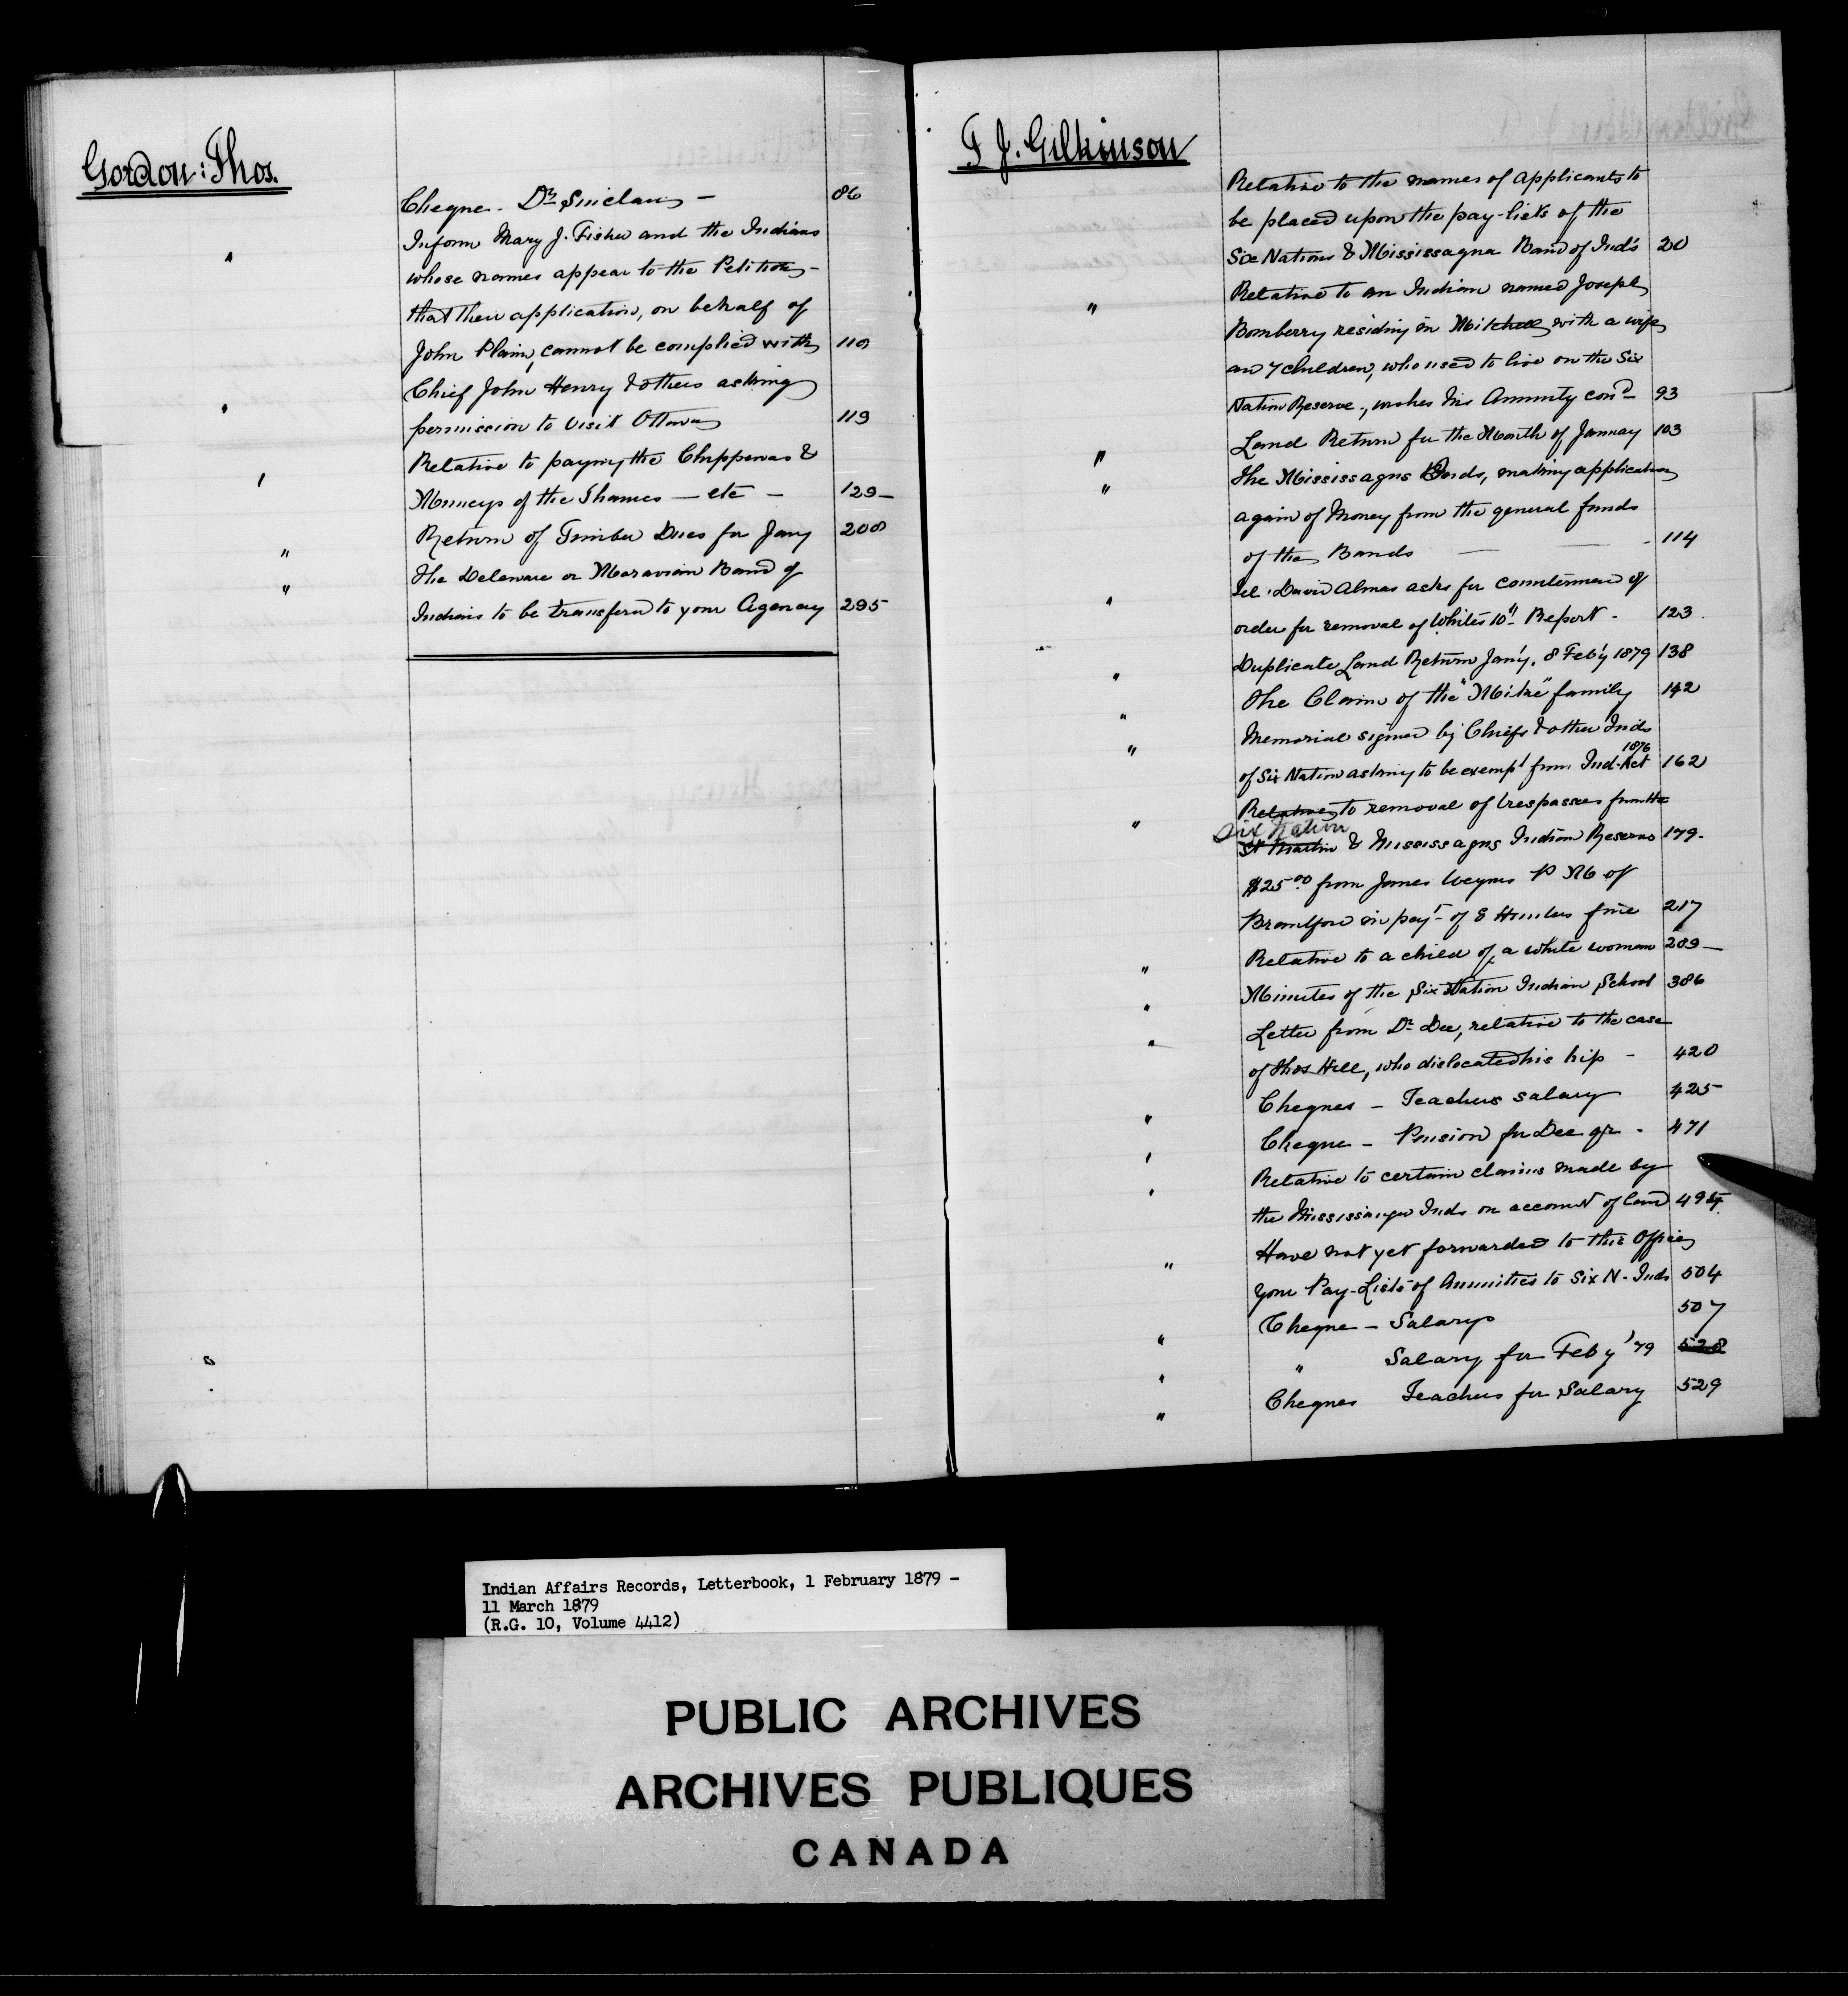 Gordon: Thos.
Cheque - Dr Sinclair - 86
" Inform Mary J. Fisher and the Indians
whose names appear to the Petition -
that their application, on behalf of
John Plain, cannot be complied with 110
" Chief John Henry & others asking
permission to visit Ottawa 119
" Relative to paying the Chippewas &
Munceys of the Thames - etc - 129 -
" Return of Timber Dues for Jany 200
" The Delaware or Moravian Band of
Indians to be transferd to your Agency 295
F J. Gilkinson
Relative to the names of applicants to
be placed upon the pay-lists of the
Six Nations & Mississagua Band of Ind's 20
" Relative to an Indian named Joseph
Bomberry residing in Mitchell with a wife
and 7 children, who used to live on the Six
Nation Reserve, wishes his Annuity con'd 93
" Land Return for the Month of January 103
" The Mississagus Bands, making application
again of Money from the general funds
of the Bands - 114
" Tel. David Almas asks for countermand of
order for removal of Whites 10" Report - 123
" Duplicate Land Return Jan'y, 8 Feb'y 1879 138
" The Claim of the "Mike" family 142
" Memorial signed by Chiefs & other Inds
1876
of Six Nation asking to be exempt from Ind. Act 162
" Relative to removal of trespasses from the
Six Nation
St Martin & Mississagus Indian Reserve 179 -
$25.00 from James Weyms P M of
Brantford in payt of E Hunters fine 217
" Relative to a child of a white woman 289 -
" Minutes of the Six Nation Indian School 386
" Letter from Dr Dee, relative to the case
of Thos Hill, who dislocated his hip - 420
" Cheques - Teachers salary 425
" Cheque - Pension for Dec qr - 471
" Relative to certain claims made by
the Mississaugua Inds on account of land 494
" Have not yet forwarded to this Office
your Pay-Lists of Annuities to Six N. Inds 504
" Cheque - Salarys 507
" " Salary for Feby '79 528
" Cheques Teachers for Salary 529
Indian Affairs Records, Letterbook, 1 February 1879 -
11 March 1879
(R.G. 10, Volume 4412)
PUBLIC ARCHIVES
ARCHIVES PUBLIQUES
CANADA